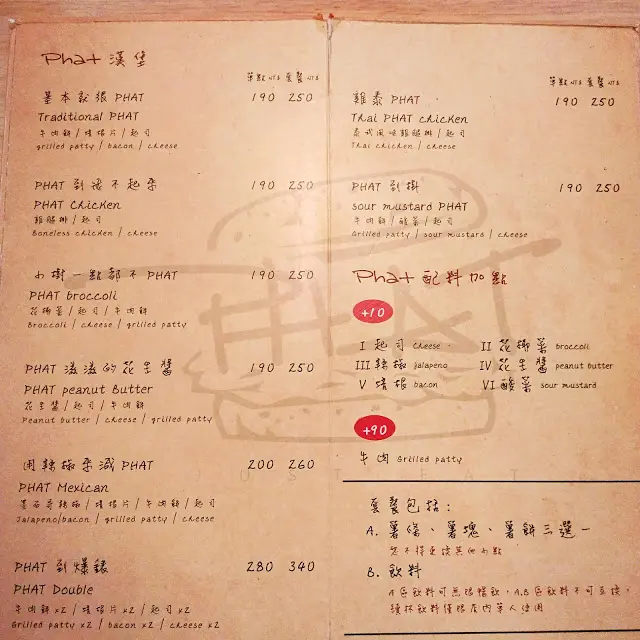 Phat 漢堡
單點 NT$ 套餐 NT$
基本款很 PHAT 190 250
Traditional PHAT
牛肉餅 / 培根片 / 起司
grilled patty / bacon / cheese
PHAT 到飛不起來 190 250
PHAT Chicken
雞腿排 / 起司
Boneless chicken / cheese
小樹一點都不 PHAT 190 250
PHAT broccoli
花椰菜 / 起司 / 牛肉餅
Broccoli / cheese / grilled patty
PHAT 滋滋的花生醬 190 250
PHAT peanut Butter
花生醬 / 起司 / 牛肉餅
Peanut butter / cheese / grilled patty
用辣椒來減 PHAT 200 260
PHAT Mexican
墨西哥辣椒 / 培根片 / 牛肉餅 / 起司
Jalapeno/bacon / grilled patty / cheese
PHAT 到爆錶 280 340
PHAT Double
牛肉餅 x2 / 培根片 x2 / 起司 x2
Grilled patty x2 / bacon x2 / cheese x2
單點 NT$ 套餐 NT$
雞泰 PHAT 190 250
Thai PHAT chicken
泰式風味雞腿排 / 起司
Thai chicken / cheese
PHAT 到掛 190 250
sour mustard PHAT
牛肉餅 / 酸菜 / 起司
Grilled patty / sour mustard / cheese
Phat 配料加點
+10
I 起司 cheese II 花椰菜 broccoli
III 辣椒 jalapeno IV 花生醬 peanut butter
V 培根 bacon VI 酸菜 sour mustard
+90
牛肉 Grilled patty
套餐包括：
A. 薯條、薯塊、薯餅三選一
恕不得更換其他小點
B. 飲料
A區飲料可無限暢飲，A.B區飲料不可互換，
續杯飲料僅限店內單人使用